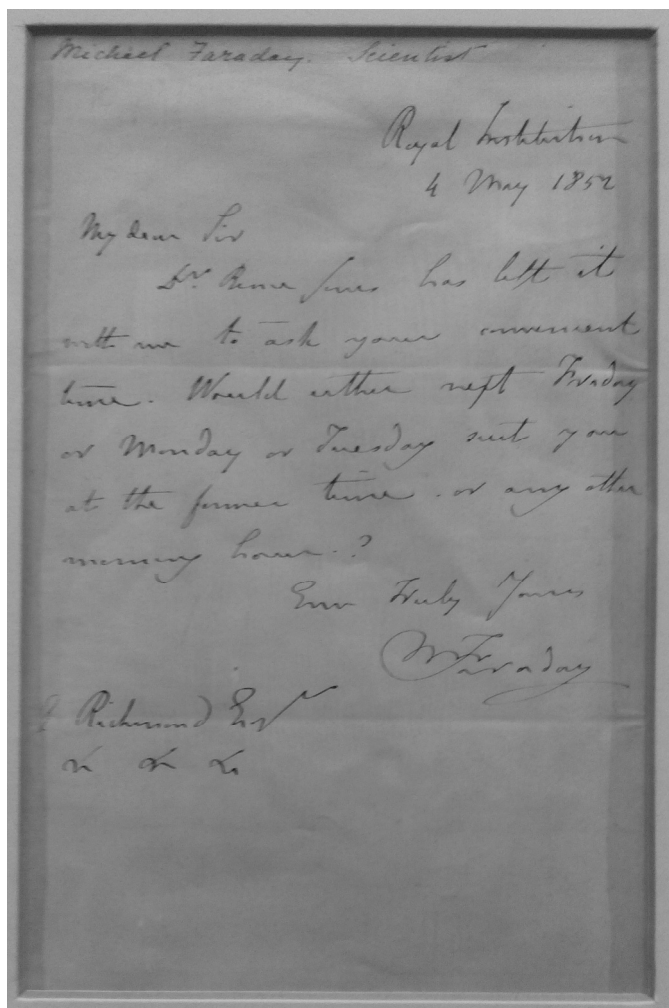 Michael Faraday. Scientist
Royal Institution
4 May 1852
My dear Sir
Dr. Bence Jones has left it
with me to ask your convenient
time. Would either next Friday
or Monday or Tuesday suit you
at the former time. or any other
morning hour.?
Ever Truly Yours
M Faraday
Richmond Esqr
&c &c &c